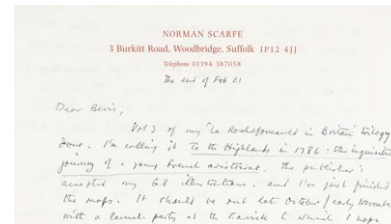 NORMAN SCARFE
3 Burkitt Road, Woodbridge, Suffolk IP12 4JJ
Telephone 01394 387058
The end of Feb 01
Dear Bevis,
Vol 3 of my 'La Rochefoucauld in Britain' trilogy
done. I'm calling it To the Highlands in 1786: the inquisitive
journey of a young French aristocrat. The publisher's
accepted my 68 illustrations, and I've just finished
the maps. It should be out late October/early November
with a launch party at the Garrick which I hope